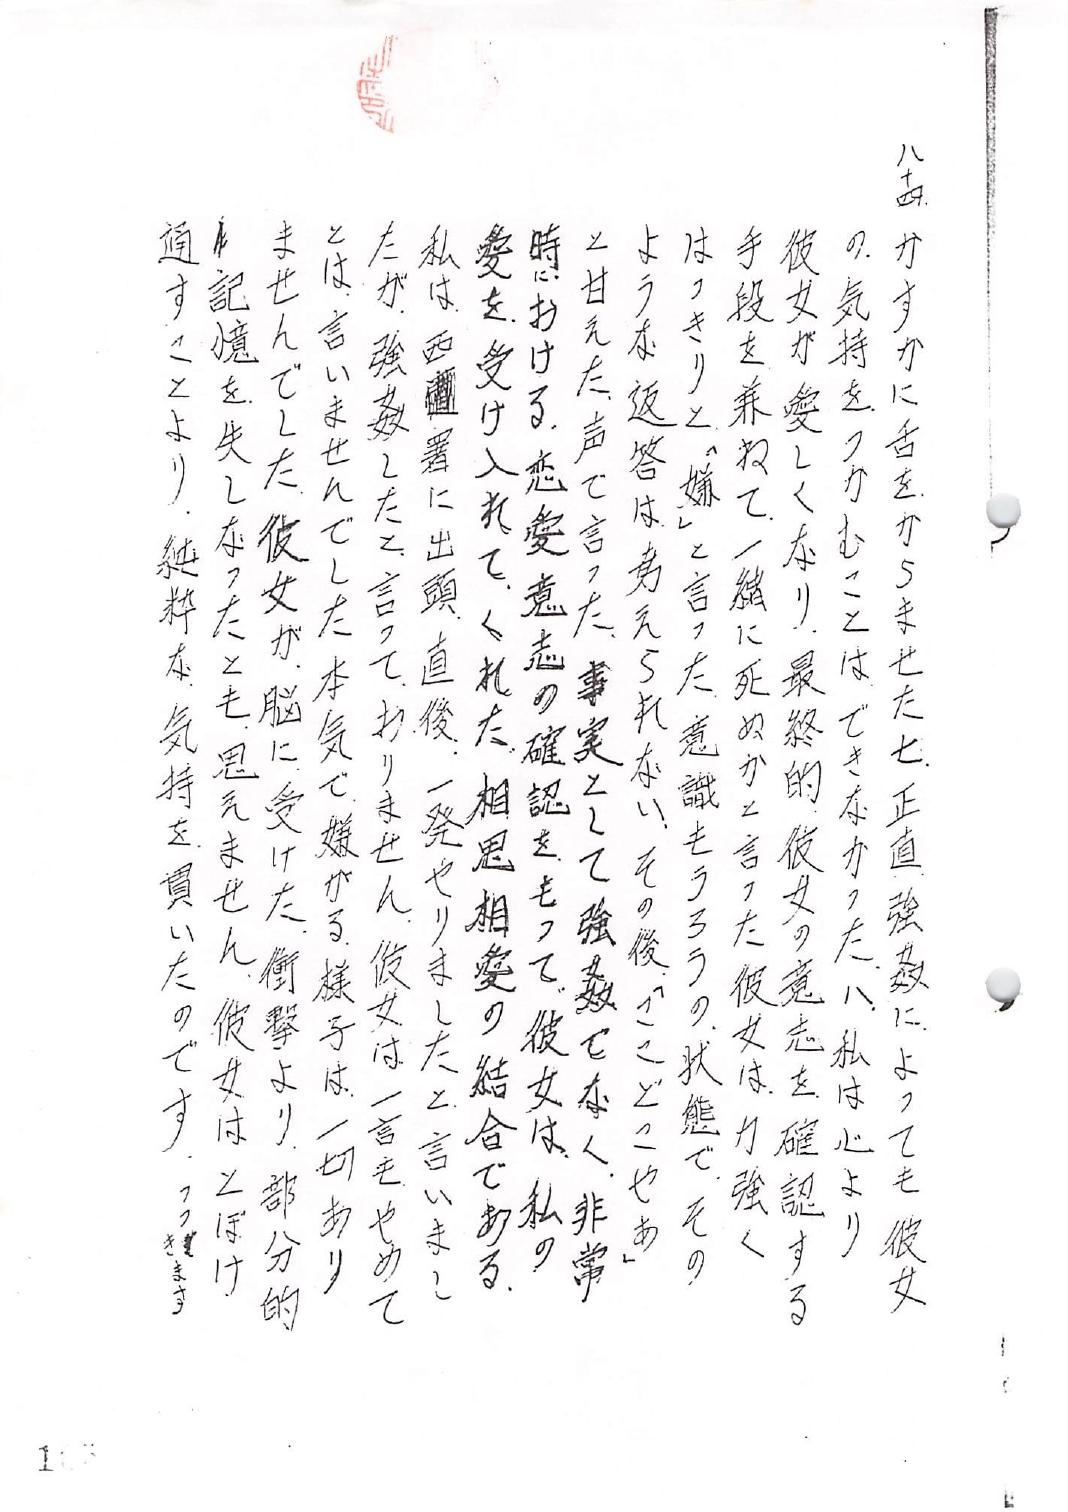 八十四.
かすかに舌をからませた七、正直、強姦に、よっても彼女
の、気持を、つかむことは、できなかった、八、私は心より
彼女が愛しくなり、最終的、彼女の意志を、確認する
手段を兼ねて、一緒に死ぬかと言った彼女は、力強く
はっきりと、「嫌」と言った、意識もうろうの、状態で、その
ような返答は、考えられない、その後、「ここどこやあ」
と甘えた、声で言った、事実として強姦でなく、非常
時における、恋愛意志の確認を、もって、彼女は、私の
愛を、受け入れて、くれた、相思相愛の結合である、
私は、西署に出頭、直後、一発やりましたと、言いまし
たが、強姦したと、言って、おりません、彼女は一言もやめて
とは、言いませんでした本気で、嫌がる、様子は、一切あり
ませんでした、彼女が、脳に、受けた、衝撃より、部分的
に記憶を、失しなったとも、思えません、彼女はとぼけ
通すことより、純粋な、気持を、貫いたのです、つづきます